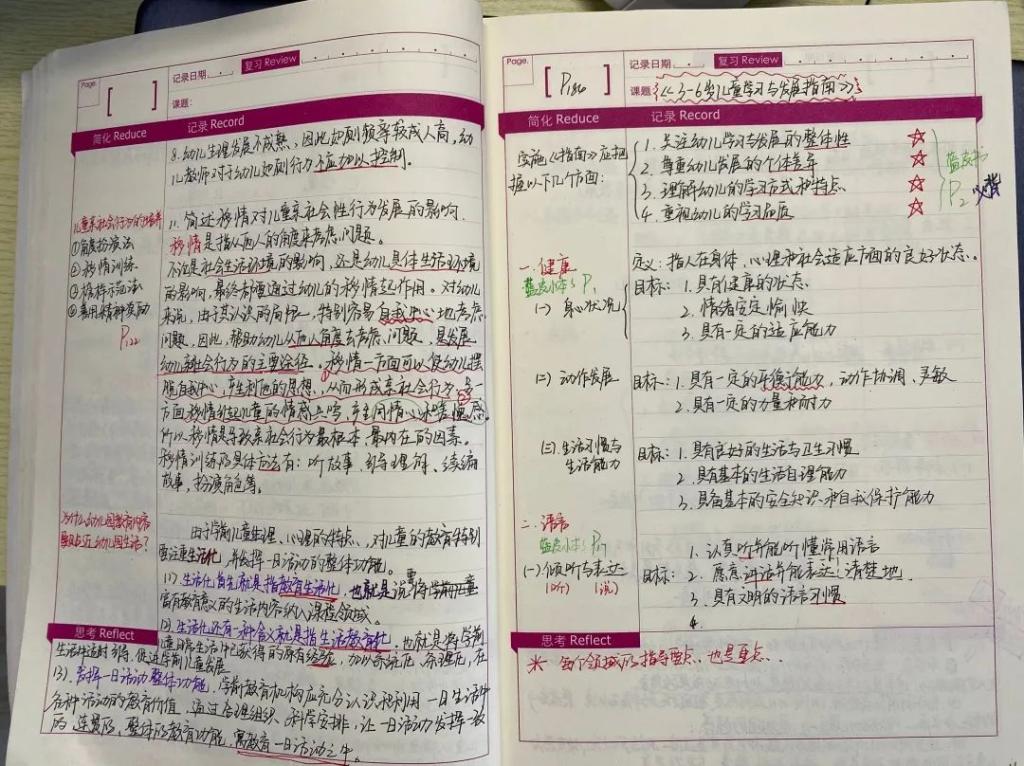 Page.
记录日期
复习 Review
课题：
简化 Reduce
记录 Record
8. 幼儿生理发展不成熟，因此如厕频率较成人高，幼
儿教师对于幼儿如厕行为不应加以控制。
儿童亲社会行为的培养
①角色扮演法
②移情训练
③榜样示范法
④善用精神奖励
P122
11. 简述移情对儿童亲社会性行为发展的影响.
移情是指从他人的角度来考虑问题。
不论是社会生活环境的影响，还是幼儿具体生活环境
的影响，最终都要通过幼儿的移情起作用。对幼儿
来说，由于其认识的局限，特别容易自我中心地考虑
问题，因此，帮助幼儿从他人角度去考虑问题，是发展
幼儿亲社会行为的主要途径。移情一方面可以使幼儿摆
脱自我中心，产生利他的思想，从而形成亲社会行为；另一
方面移情引起儿童的情感共鸣，产生同情心和羞愧感。
所以移情是导致亲社会行为最根本、最内在的因素。
移情训练的具体方法有：听故事、引导理解、续编
故事，扮演角色等。
为什么幼儿园教育内容
要贴近幼儿园生活？
由于学前儿童生理、心理的特点，对儿童的教育特别
要注重生活化，并发挥一日活动的整体功能。
(1) 生活化首先就是指教育生活化，也就是说要将
富有教育意义的生活内容纳入课程领域。
(2). 生活化还有一种含义就是指生活教育化，也就是将学前
儿童日常生活中已获得的原有经验，加以系统化、条理化，在
思考 Reflect
生活中适时引导，促进学前儿童发展
(3). 发挥一日活动整体功能，学前教育机构应充分认识和利用一日生活中
各种活动的教育价值，通过合理组织、科学安排，让一日活动发挥一致
的、连贯的、整体的教育功能，寓教育一日活动之中。
Page.
P186
记录日期
复习 Review
课题：《3-6岁儿童学习与发展指南》
简化 Reduce
记录 Record
实施《指南》应把
握以下几个方面：
1. 关注幼儿学习与发展的整体性
2. 尊重幼儿发展的个体差异
3. 理解幼儿的学习方式和特点
4. 重视幼儿的学习品质
P2
必背
一. 健康
蓝皮小本：P1
(一) 身心状况
定义：指人在身体、心理和社会适应方面的良好状态.
目标：1. 具有健康的状态
2. 情绪安定愉快
3. 具有一定的适应能力
(二) 动作发展
目标：1. 具有一定的平衡能力，动作协调、灵敏
2. 具有一定的力量和耐力
(三). 生活习惯与
生活能力
目标：1. 具有良好的生活与卫生习惯
2. 具有基本的生活自理能力
3. 具备基本的安全知识和自我保护能力
二. 语言
(一) 倾听与表达
(听)
(说)
目标：
1. 认真听并能听懂常用语言
2. 愿意讲话并能表达清楚地.
3. 具有文明的语言习惯
4.
思考 Reflect
※ 每个领域的指导要点，也是重点.